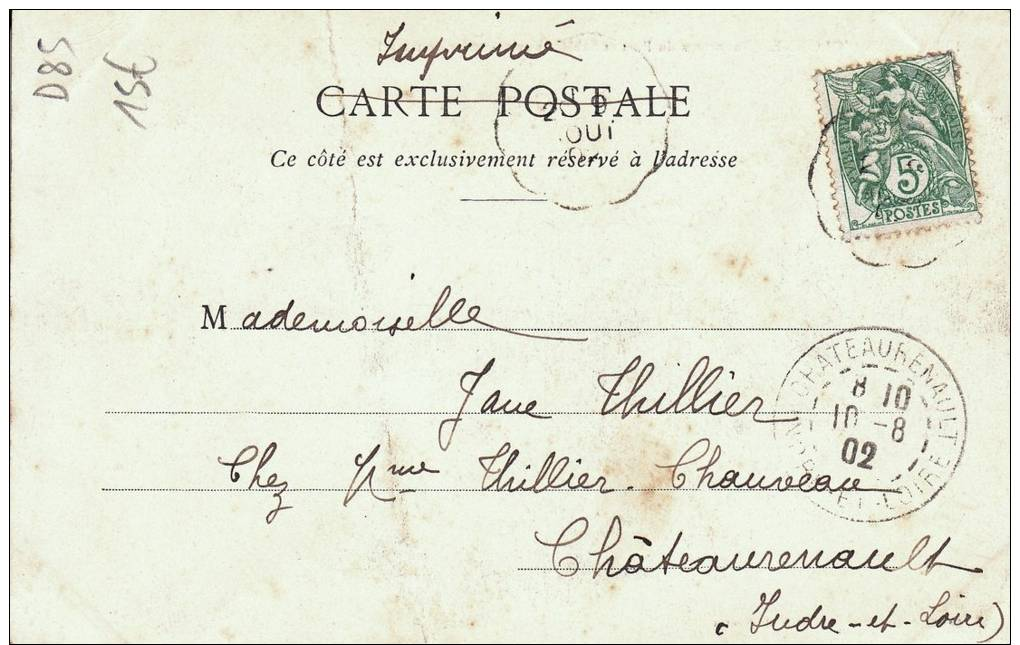 D85
15€
Imprimé
CARTE POSTALE
OUI
Ce côté est exclusivement réservé à l'adresse
5c
POSTES
Mademoiselle
Jane Thillier
Chez Mme Thillier-Chauveau
Châteaurenault
(Indre-et-Loire)
CHATEAURENAULT
8 10
10 -8
02
INDRE-ET-LOIRE